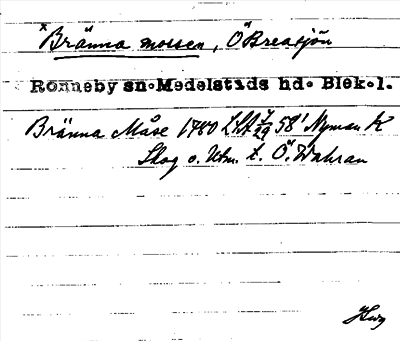 * Bränna mossen, Ö Breasjön
Ronneby sn. Medelstids hd. Blek.l.
Bränna Måse 1780 LSA 7/29 58' Nyman K
Skog o. Utm. t. Ö. Wahran